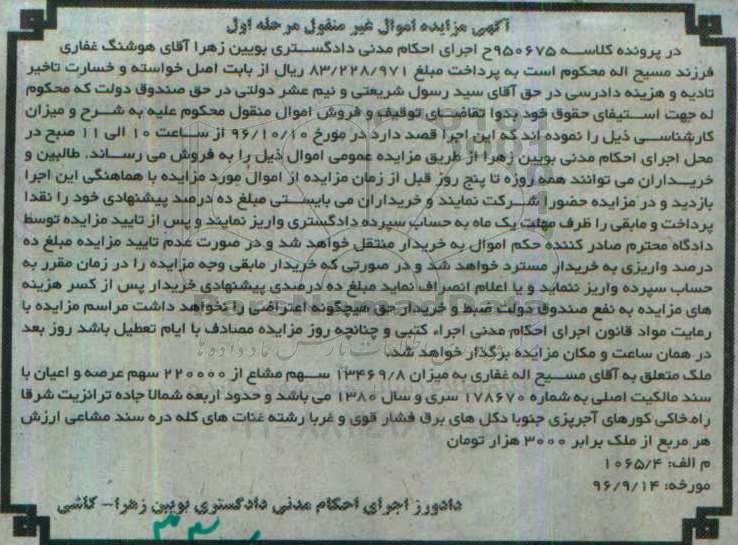 آگهی مزایده اموال غیر منقول مرحله اول
در پرونده کلاسه ۹۵۰۶۷۵ح اجرای احکام مدنی دادگستری بویین زهرا آقای هوشنگ غفاری
فرزند مسیح اله محکوم است به پرداخت مبلغ ۸۳/۲۲۸/۹۷۱ ریال از بابت اصل خواسته و خسارت تاخیر
تادیه و هزینه دادرسی در حق آقای سید رسول شریعتی و نیم عشر دولتی در حق صندوق دولت که محکوم
له جهت استیفای حقوق خود بدوا تقاضای توقیف و فروش اموال منقول محکوم علیه به شرح و میزان
کارشناسی ذیل را نموده اند که این اجرا قصد دارد در مورخ ۹۶/۱۰/۱۰ از ساعت ۱۰ الی ۱۱ صبح در
محل اجرای احکام مدنی بویین زهرا از طریق مزایده عمومی اموال ذیل را به فروش می رساند. طالبین و
خریداران می توانند همه روزه تا پنج روز قبل از زمان مزایده از اموال مورد مزایده با هماهنگی این اجرا
بازدید و در مزایده حضورا شرکت نمایند و خریداران می بایستی مبلغ ده درصد پیشنهادی خود را نقدا
پرداخت و مابقی را ظرف مهلت یک ماه به حساب سپرده دادگستری واریز نمایند و پس از تایید مزایده توسط
دادگاه محترم صادر کننده حکم اموال به خریدار منتقل خواهد شد و در صورت عدم تایید مزایده مبلغ ده
درصد واریزی به خریدار مسترد خواهد شد و در صورتی که خریدار مابقی وجه مزایده را در زمان مقرر به
حساب سپرده واریز ننماید و یا اعلام انصراف نماید مبلغ ده درصدی پیشنهادی خریدار پس از کسر هزینه
های مزایده به نفع صندوق دولت ضبط و خریدار حق هیچگونه اعتراضی را نخواهد داشت مراسم مزایده با
رعایت مواد قانون اجرای احکام مدنی اجراء کتبی و چنانچه روز مزایده مصادف با ایام تعطیل باشد روز بعد
در همان ساعت و مکان مزایده برگذار خواهد شد.
ملک متعلق به آقای مسیح اله غفاری به میزان ۱۳۴۶۹/۸ سهم مشاع از ۲۲۰۰۰۰ سهم عرصه و اعیان با
سند مالکیت اصلی به شماره ۱۷۸۶۷۰ سری و سال ۱۳۸۰ می باشد و حدود اربعه شمالا جاده ترانزیت شرقا
راه خاکی کورهای آجرپزی جنوبا دکل های برق فشار قوی و غربا رشته غنات های کله دره سند مشاعی ارزش
هر مربع از ملک برابر ۳۰۰۰ هزار تومان
م الف: ۱۰۶۵/۴
مورخه: ۹۶/۹/۱۴
دادورز اجرای احکام مدنی دادگستری بویین زهرا- کاشی
ParsNamadData